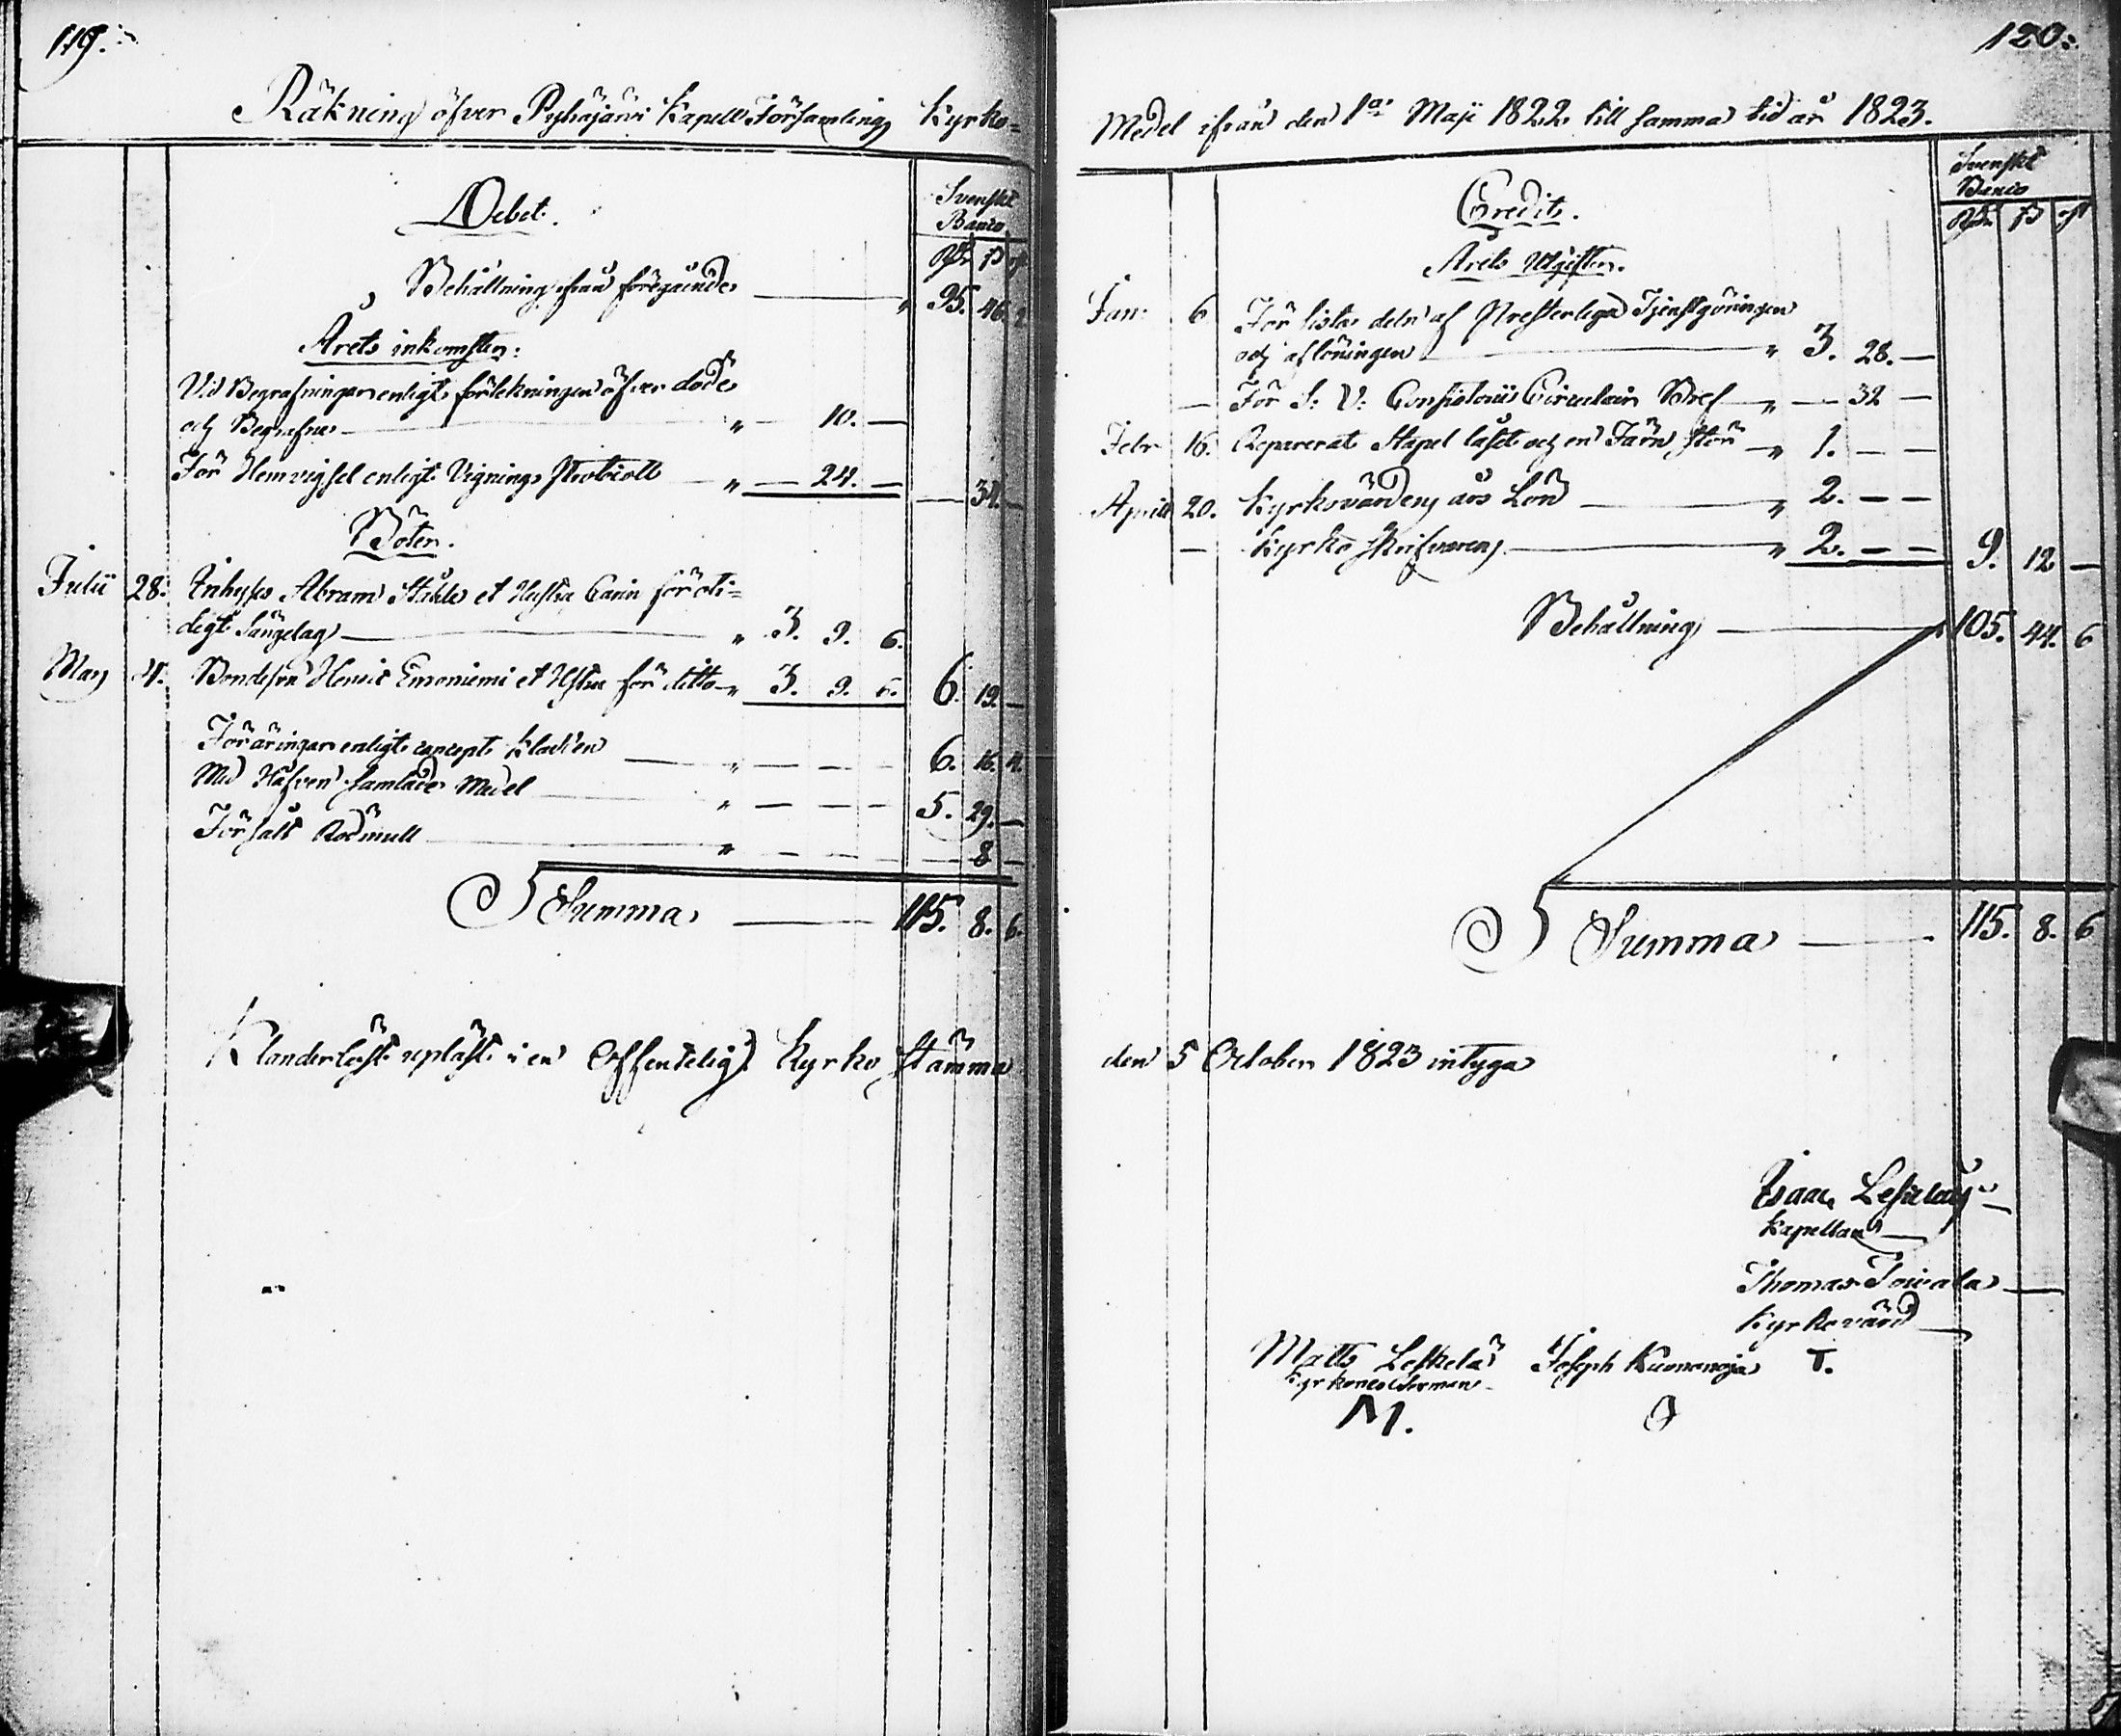 119.
Räkning öfver Pyhäjärvi Kapell Församlings Kyrko-
Debet.
Svenskt
Banco
Rdr ß rst
Behållning ifrån föregående — " 95. 46. 2
Årets inkomster:
Vid Begrafningar enligt förtekningen öfver döde
och Begrafne — " — 10. —
För Hemvigsel enligt Vignings Protocoll — " — 24. — — 34. —
Böter.
Julii 28. Inhyses Abram Ståhle et Hustru Carin för oti-
digt Sängelag — " 3. 9. 6.
Mars 4. Bondeson Henric Emoniemi et Hstru för ditto " 3. 9. 6. 6. 19. —
Föräringar enligt concept Kladden — " — — — 6. 16. 4.
Med Håfven samlade Medel — " — — — 5. 29. —
Försålt Rödmull — " — — — — 8 —
Summa — 115. 8. 6.
Klanderlöst upläst i en Offentelig Kyrko stämma
120.
Medel ifrån den 1a Maji 1822 till samma tid år 1823.
Credit.
Svenskt
Banco
Rdr ß rst
Årets Utgifter.
Jan: 6 För sista delen af Presterliga Tjenstgöringen
och aflöningen — " 3. 28. —
— För S: V: Consistorii Circulair Bref — " — 32 —
Febr 16. Reparerat Stapel låset och en Järn stör — " 1. — —
Aprill 20. Kyrkovärdens års Lön — " 2. — —
— Kyrko skrifvarens — " 2. — — 9. 12 —
Behållning — 105. 44. 6
Summa — 115. 8. 6
den 5 October 1823 intyga
Isaac
Kapellan
Thomas
Kyrkovärd
Matts Leskelä Joseph T.
Kyrkones
M.